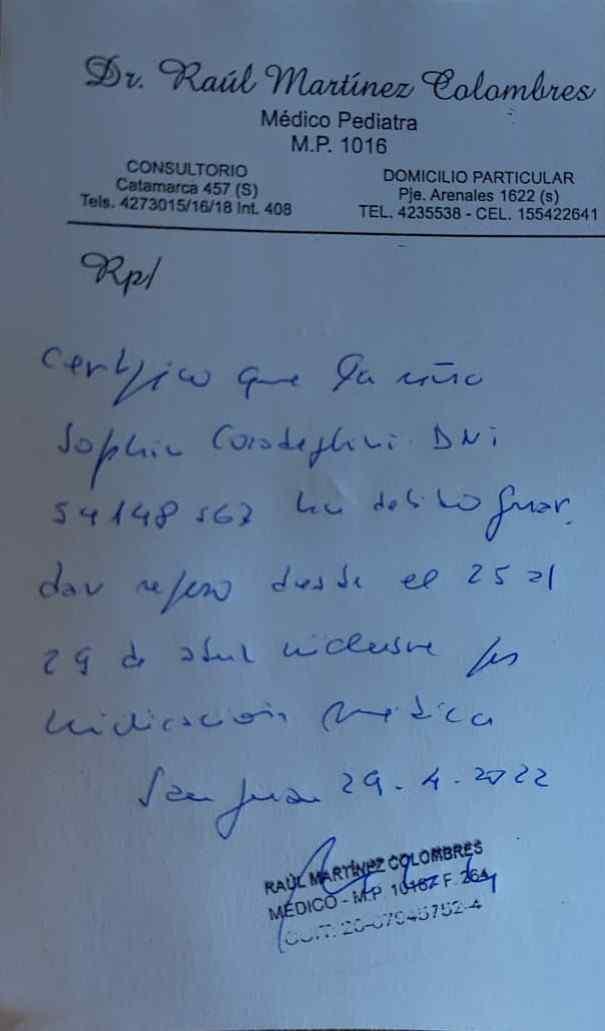 Dr. Raúl Martínez Colombres
Médico Pediatra
M.P. 1016
CONSULTORIO
Catamarca 457 (S)
Tels. 4273015/16/18 Int. 408
DOMICILIO PARTICULAR
Pje. Arenales 1622 (s)
TEL. 4235538 - CEL. 155422641
Rp/
Certifico que la niña
Sophia DNI
54148567 ha debido guar
dar reposo desde el 25 al
29 de abril inclusive por
indicación medica
San Juan 29-4-2022
RAÚL MARTÍNEZ COLOMBRES
MÉDICO - M.P. F. 264
CUIT: